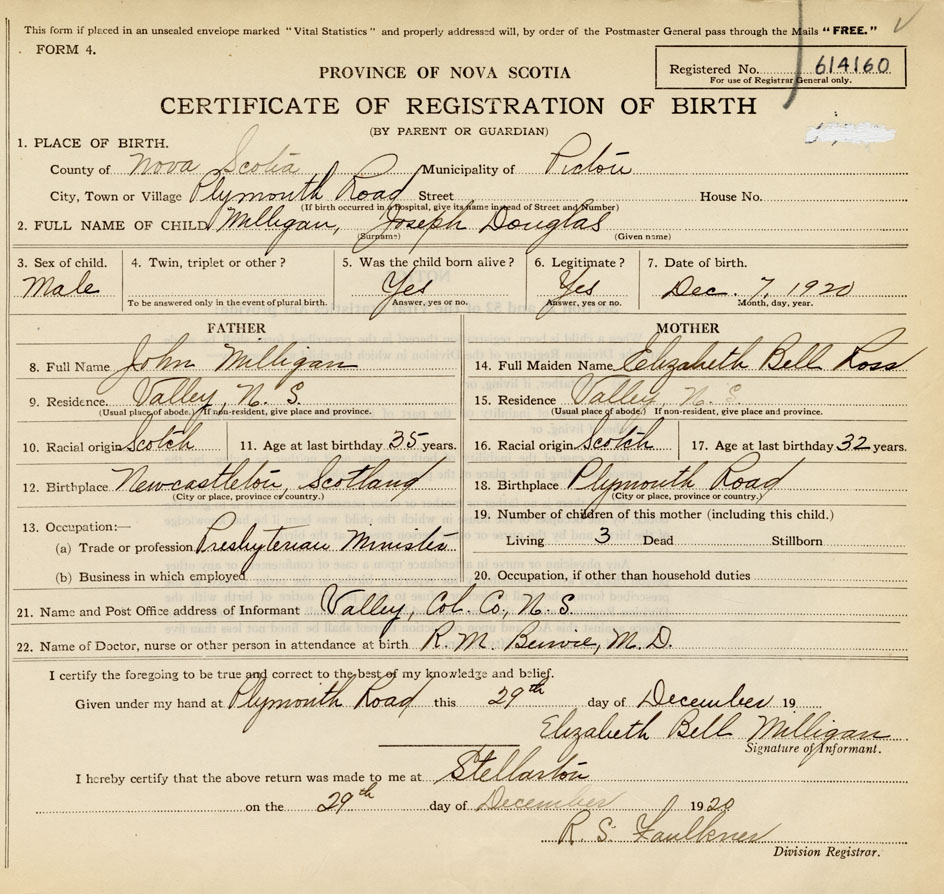 This form if placed in an unsealed envelope marked "Vital Statistics" and properly addressed will, by order of the Postmaster General pass through the Mails "FREE."
FORM 4.
Registered No. 614160
For use of Registrar General only.
PROVINCE OF NOVA SCOTIA
CERTIFICATE OF REGISTRATION OF BIRTH
(BY PARENT OR GUARDIAN)
1. PLACE OF BIRTH.
County of Nova Scotia Municipality of Pictou
City, Town or Village Plymouth Road Street House No.
(If birth occurred in a hospital, give its name instead of Street and Number)
2. FULL NAME OF CHILD Milligan, Joseph Douglas
(Surname) (Given name)
3. Sex of child. 4. Twin, triplet or other? 5. Was the child born alive? 6. Legitimate? 7. Date of birth.
Male Yes Yes Dec. 7, 1920
To be answered only in the event of plural birth. Answer, yes or no. Answer, yes or no. Month, day, year.
FATHER
8. Full Name John Milligan
9. Residence. Valley, N. S.
(Usual place of abode.) If non-resident, give place and province.
10. Racial origin Scotch 11. Age at last birthday 35 years.
12. Birthplace Newcastleton, Scotland
(City or place, province or country.)
13. Occupation:—
(a) Trade or profession Presbyterian Minister
(b) Business in which employed
MOTHER
14. Full Maiden Name Elizabeth Bell Ross
15. Residence Valley, N. S.
(Usual place of abode.) If non-resident, give place and province.
16. Racial origin Scotch 17. Age at last birthday 32 years.
18. Birthplace Plymouth Road
(City or place, province or country.)
19. Number of children of this mother (including this child.)
Living 3 Dead Stillborn
20. Occupation, if other than household duties
21. Name and Post Office address of Informant Valley, Col. Co., N. S.
22. Name of Doctor, nurse or other person in attendance at birth R. M. M.D.
I certify the foregoing to be true and correct to the best of my knowledge and belief.
Given under my hand at Plymouth Road this 29th day of December 19
Elizabeth Bell Milligan
Signature of Informant.
I hereby certify that the above return was made to me at Stellarton
on the 29th day of December 1920
R. S. Faulkner
Division Registrar.